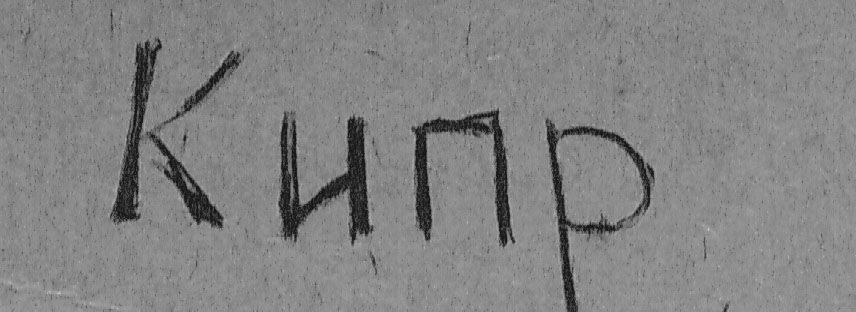 Кипр